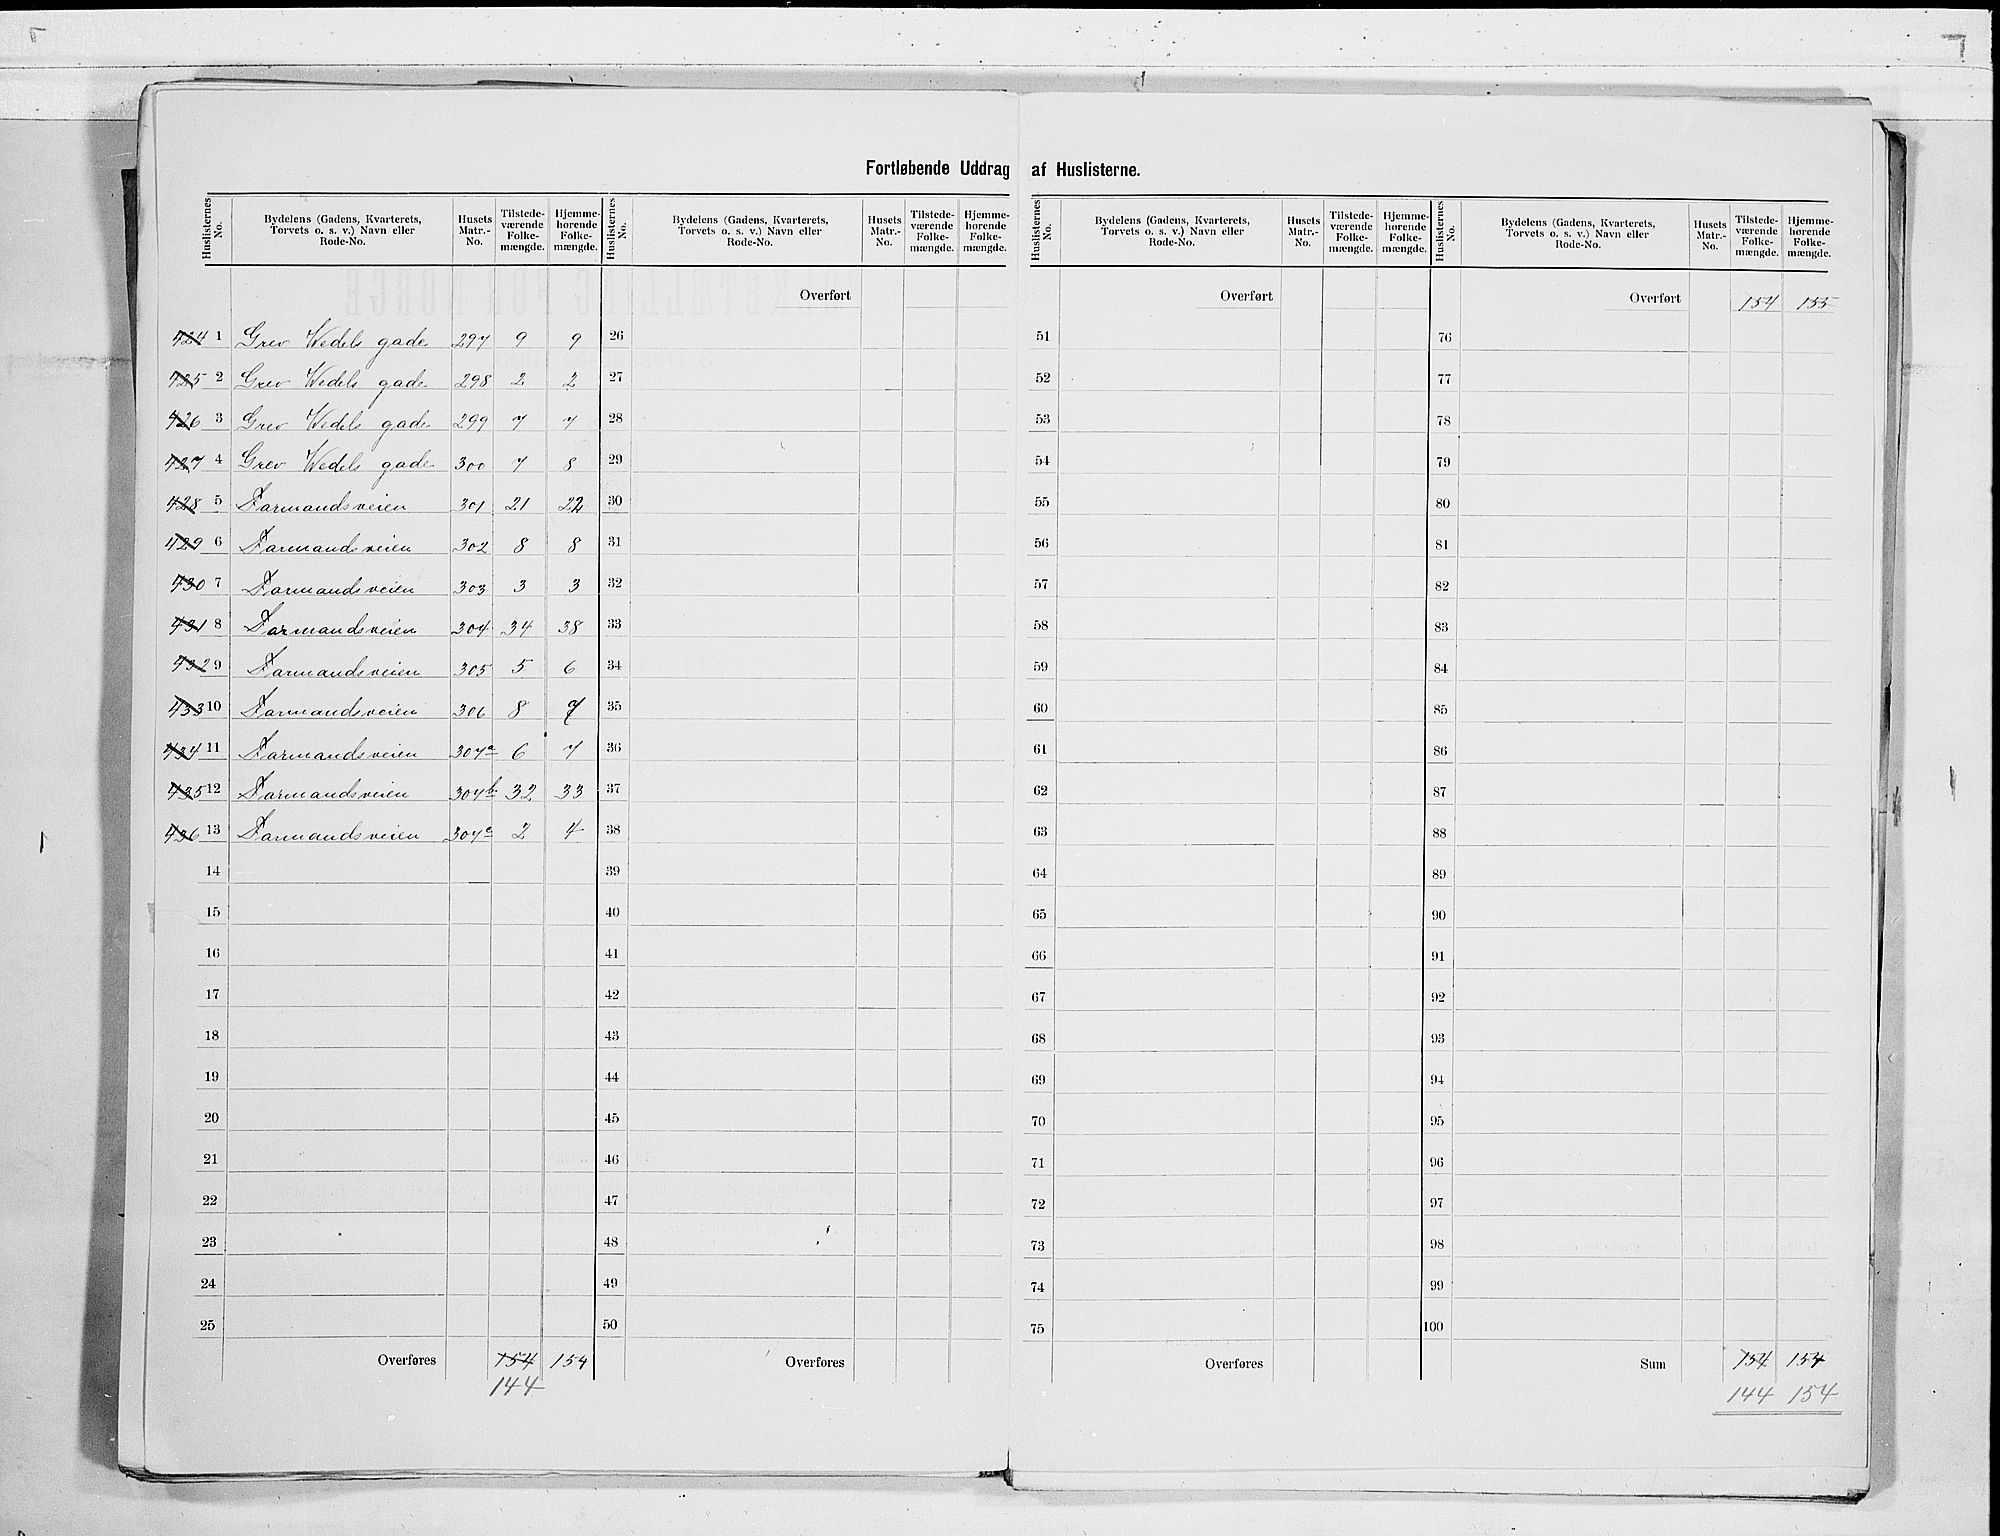 Fortløbende Uddrag af Huslisterne.
Huslisternes No. Bydelens (Gadens, Kvarterets, Torvets o. s. v.) Navn eller Rode-No. Husets Matr.-No. Tilstedeværende Folkemængde. Hjemmehørende Folkemængde.
Huslisternes No. Bydelens (Gadens, Kvarterets, Torvets o. s. v.) Navn eller Rode-No. Husets Matr.-No. Tilstedeværende Folkemængde. Hjemmehørende Folkemængde.
Huslisternes No. Bydelens (Gadens, Kvarterets, Torvets o. s. v.) Navn eller Rode-No. Husets Matr.-No. Tilstedeværende Folkemængde. Hjemmehørende Folkemængde.
Huslisternes No. Bydelens (Gadens, Kvarterets, Torvets o. s. v.) Navn eller Rode-No. Husets Matr.-No. Tilstedeværende Folkemængde. Hjemmehørende Folkemængde.
Overført Overført Overført 154 155
424 1 Grev Wedels gade 297 9 9 26 51 76
425 2 Grev Wedels gade 298 2 2 27 52 77
426 3 Grev Wedels gade 299 7 7 28 53 78
427 4 Grev Wedels gade 300 7 8 29 54 79
428 5 Farmandsveien 301 21 22 30 55 80
429 6 Farmandsveien 302 8 8 31 56 81
430 7 Farmandsveien 303 3 3 32 57 82
431 8 Farmandsveien 304 34 38 33 58 83
432 9 Farmandsveien 305 5 6 34 59 84
433 10 Farmandsveien 306 8 7 35 60 85
434 11 Farmandsveien 307a 6 7 36 61 86
435 12 Farmandsveien 307b 32 33 37 62 87
436 13 Farmandsveien 307c 2 4 38 63 88
14 39 64 89
15 40 65 90
16 41 66 91
17 42 67 92
18 43 68 93
19 44 69 94
20 45 70 95
21 46 71 96
22 47 72 97
23 48 73 98
24 49 74 99
25 50 75 100
Overføres 154 154 Overføres Overføres Sum 154 154
144 144 154